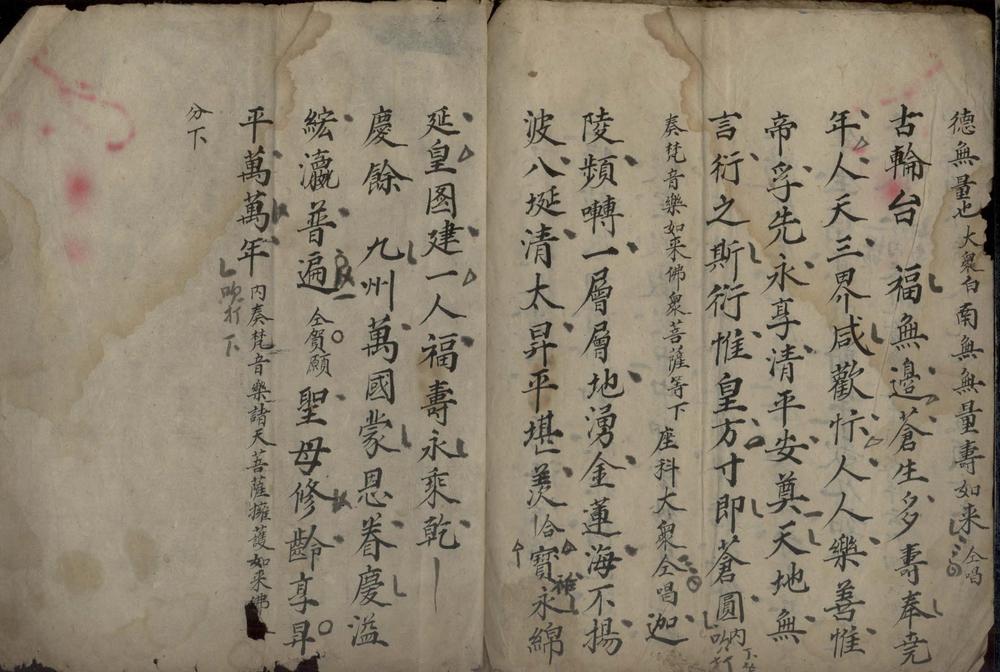 德無量也大衆白南無無量壽如来仝唱
古輪台　福無邊蒼生多壽奉堯
年人天三界咸歡忭人人樂善惟
帝孚先永享清平安奠天地無
言衍之斯衍惟皇方寸即蒼圓内吹打下
奏梵音樂如来佛衆菩薩等下座科大衆仝唱迦
陵頻囀一層層地湧金蓮海不揚
波八埏清太昇平堪羨恰寶祚永綿
延皇圖建一人福壽永乘乾
慶餘　九州萬國蒙恩眷慶溢
綋瀛普遍仝賀願聖母修齡享昇
平萬萬年内奏梵音樂諸天菩薩擁護如来佛
吹打下
分下